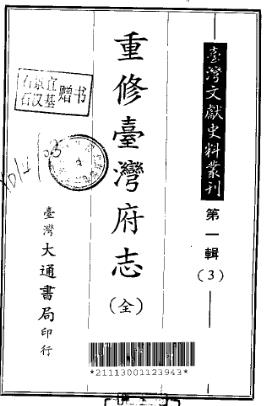 臺灣文獻史料叢刊
第一輯
(3)
重修臺灣府志
(全)
臺灣大通書局印行
石景宜
石汉基
赠书
*21113001123943*